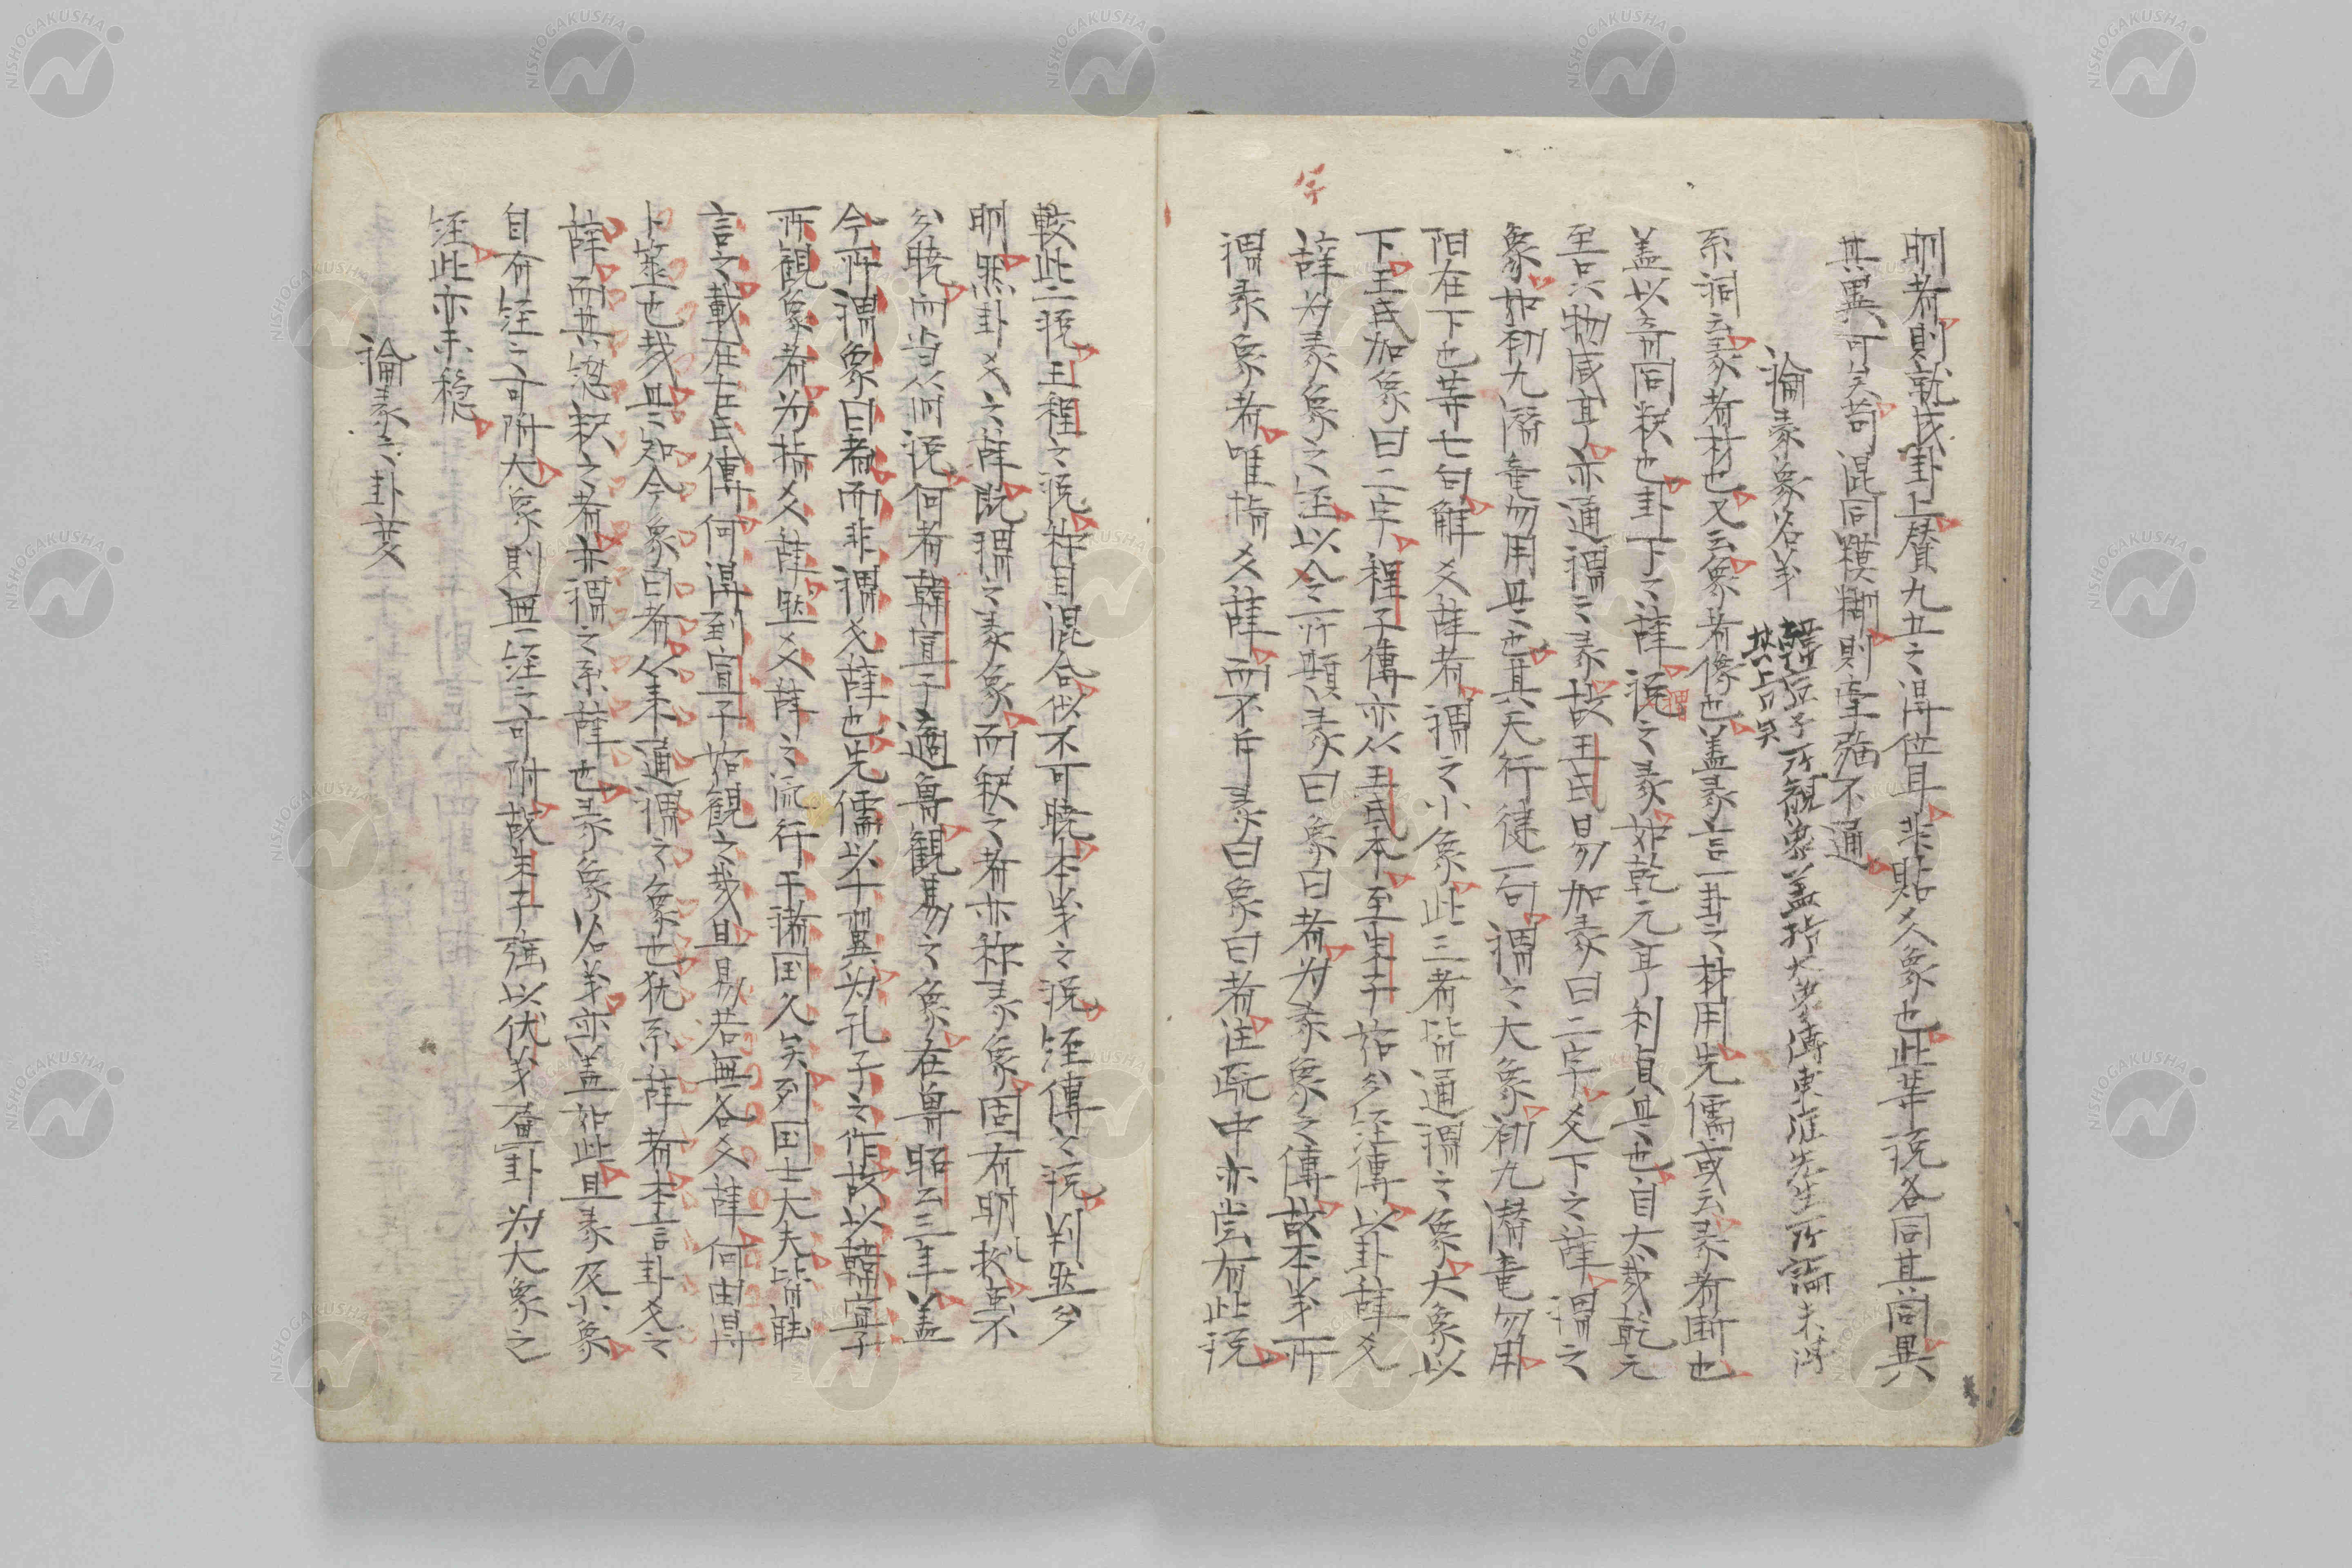 明者則就成卦上賛九五之得位耳非貼爻象也此等説各同其同異
其異可矣苟混同糢糊則牽強不通
論彖象名義
韓宣子所観象蓋指大象傳東涯先生所論未得
系詞云彖者材也又云象者像也蓋彖言一卦之材用先儒或云彖者断也
蓋以音同釈也卦下之辞説之彖如乾元亨利貞是也自大哉乾元
謂
至品物咸亨亦通謂之彖故王氏易加彖曰二字爻下之辞謂之
象如初九潜竜勿用是也其天行健一句謂之大象初九潜竜勿用
陽在下也等七句解爻辞者謂之小象此三者皆通謂之象大象以
下王氏加象曰二字程子傳亦从王氏本至朱子始分経傳以卦辞爻
字
辞为彖象之経以今所題彖曰象曰者为彖象之傳故本義所
謂彖象者唯指爻辞而不斥彖曰象曰者注疏中亦嘗有此説
較此二説王程之説衪目混合似不可暁本義之説経傳之説判然分
明然卦爻之辞既謂之彖象而釈之者亦称彖象固有明拠甚不
分暁而当从何説何者韓宣子適魯観易之象在魯昭公三年蓋
今所謂象曰者而非謂爻辞也先儒以十翼为孔子之作故以韓宣子
所観象者为指爻辞然爻辞之流行于諸国久矣列国士大夫皆能
言之載在左氏傳何得到宣子始観之哉且易若無各爻辞何由得
卜筮也哉是知今象曰者从来通謂之象也犹系辞者本言卦爻之
辞而其総釈之者亦謂之系辞也彖象名義亦蓋如此且彖及小象
自有経之可附大象則無経之可附故朱子強以伏羲畫卦为大象之
経此亦未穏
論彖六卦変